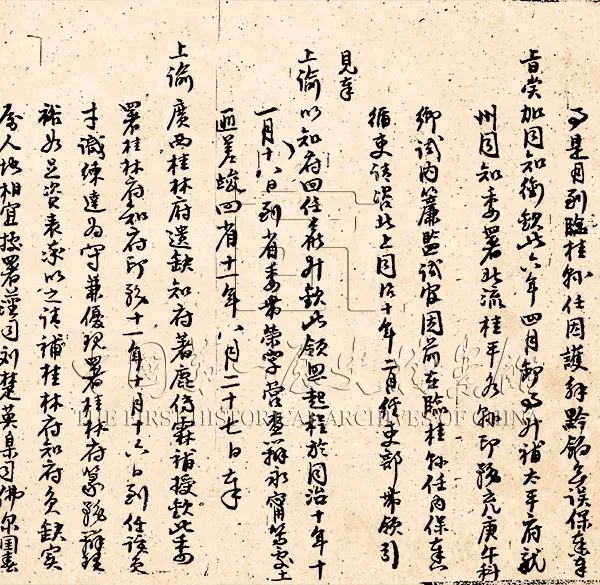 事是月到臨桂縣任因護解黔餉無誤保奏奉
旨賞加同知銜欽此六年四月卸事升補太平府龍
州同知委署北流桂平各縣印務充庚午科
鄉試內簾監試官因前在臨桂縣任內保
循吏請咨北上同治十年二月經吏部帶領引
見奉
上諭以知府回任候升欽此領照起程於同治十年十
一月十六日到省委帶榮字營查辦永甯等處土
匪差竣回省十一年八月二十七日奉
上諭廣西桂林府遺缺知府著鹿傳霖補授欽此委
署桂林府知府印務十一年十月十六日到任該員
才識練達為守兼優現署桂林府篆務辦理
裕如足資表率以之請補桂林府知府員缺實
屬人地相宜據署藩司劉楚英臬司佛爾國春
中國第一歷史檔案館
THE FIRST HISTORICAL ARCHIVES OF CHINA